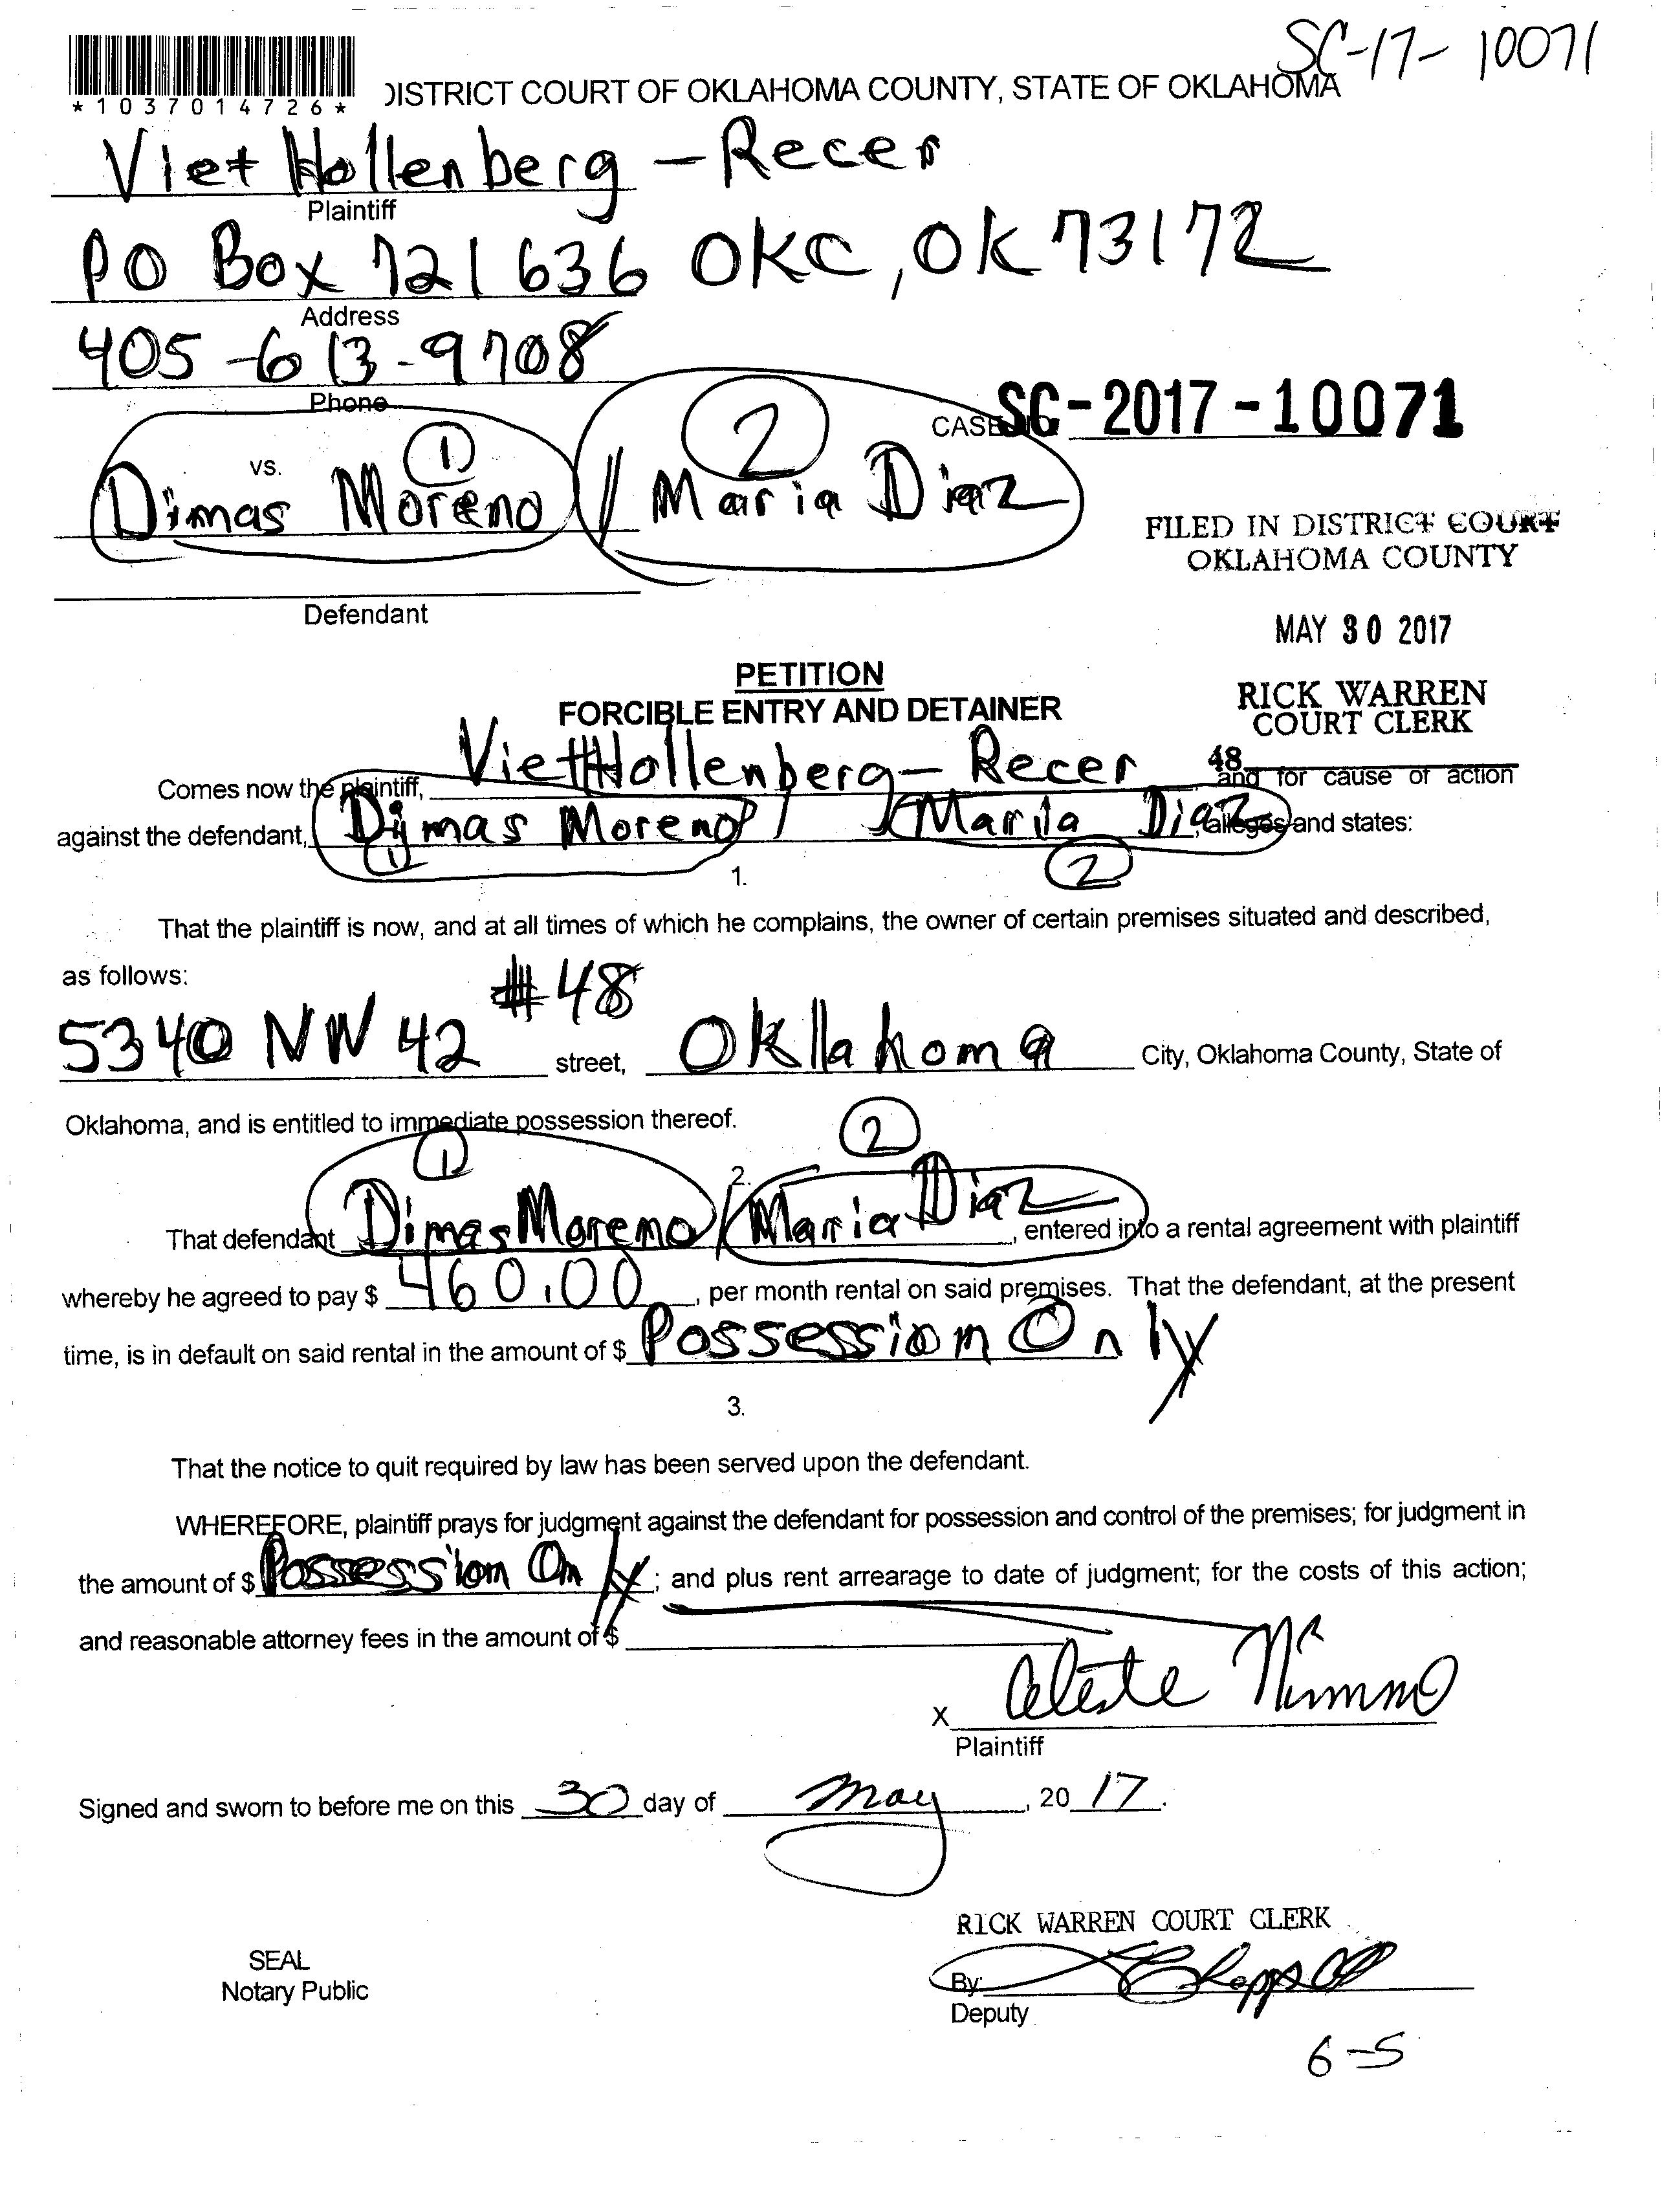 SC-17-10071
*1037014726*
DISTRICT COURT OF OKLAHOMA COUNTY, STATE OF OKLAHOMA
Viet Hollenberg - Recer
Plaintiff
PO Box 721636 OKC, OK 73172
Address
405-613-9708
Phone
CASE SC-2017-10071
vs.
1 2
Dimas Moreno / Maria Diaz
FILED IN DISTRICT COURT
OKLAHOMA COUNTY
Defendant
MAY 30 2017
PETITION
RICK WARREN
COURT CLERK
FORCIBLE ENTRY AND DETAINER
48
Comes now the plaintiff, Viet Hollenberg - Recer and for cause of action
against the defendant, Dimas Moreno / Maria Diaz, alleges and states:
1 2
1.
That the plaintiff is now, and at all times of which he complains, the owner of certain premises situated and described,
as follows:
5340 NW 42 #48 street, Oklahoma City, Oklahoma County, State of
Oklahoma, and is entitled to immediate possession thereof.
1 2
2.
That defendant Dimas Moreno / Maria Diaz, entered into a rental agreement with plaintiff
whereby he agreed to pay $ 460.00, per month rental on said premises. That the defendant, at the present
time, is in default on said rental in the amount of $ Possession Only
3.
That the notice to quit required by law has been served upon the defendant.
WHEREFORE, plaintiff prays for judgment against the defendant for possession and control of the premises; for judgment in
the amount of $ Possession Only; and plus rent arrearage to date of judgment; for the costs of this action;
and reasonable attorney fees in the amount of $
x Celeste Nimmo
Plaintiff
Signed and sworn to before me on this 30 day of May, 20 17.
RICK WARREN COURT CLERK
SEAL
Notary Public
By:
Deputy
6-5